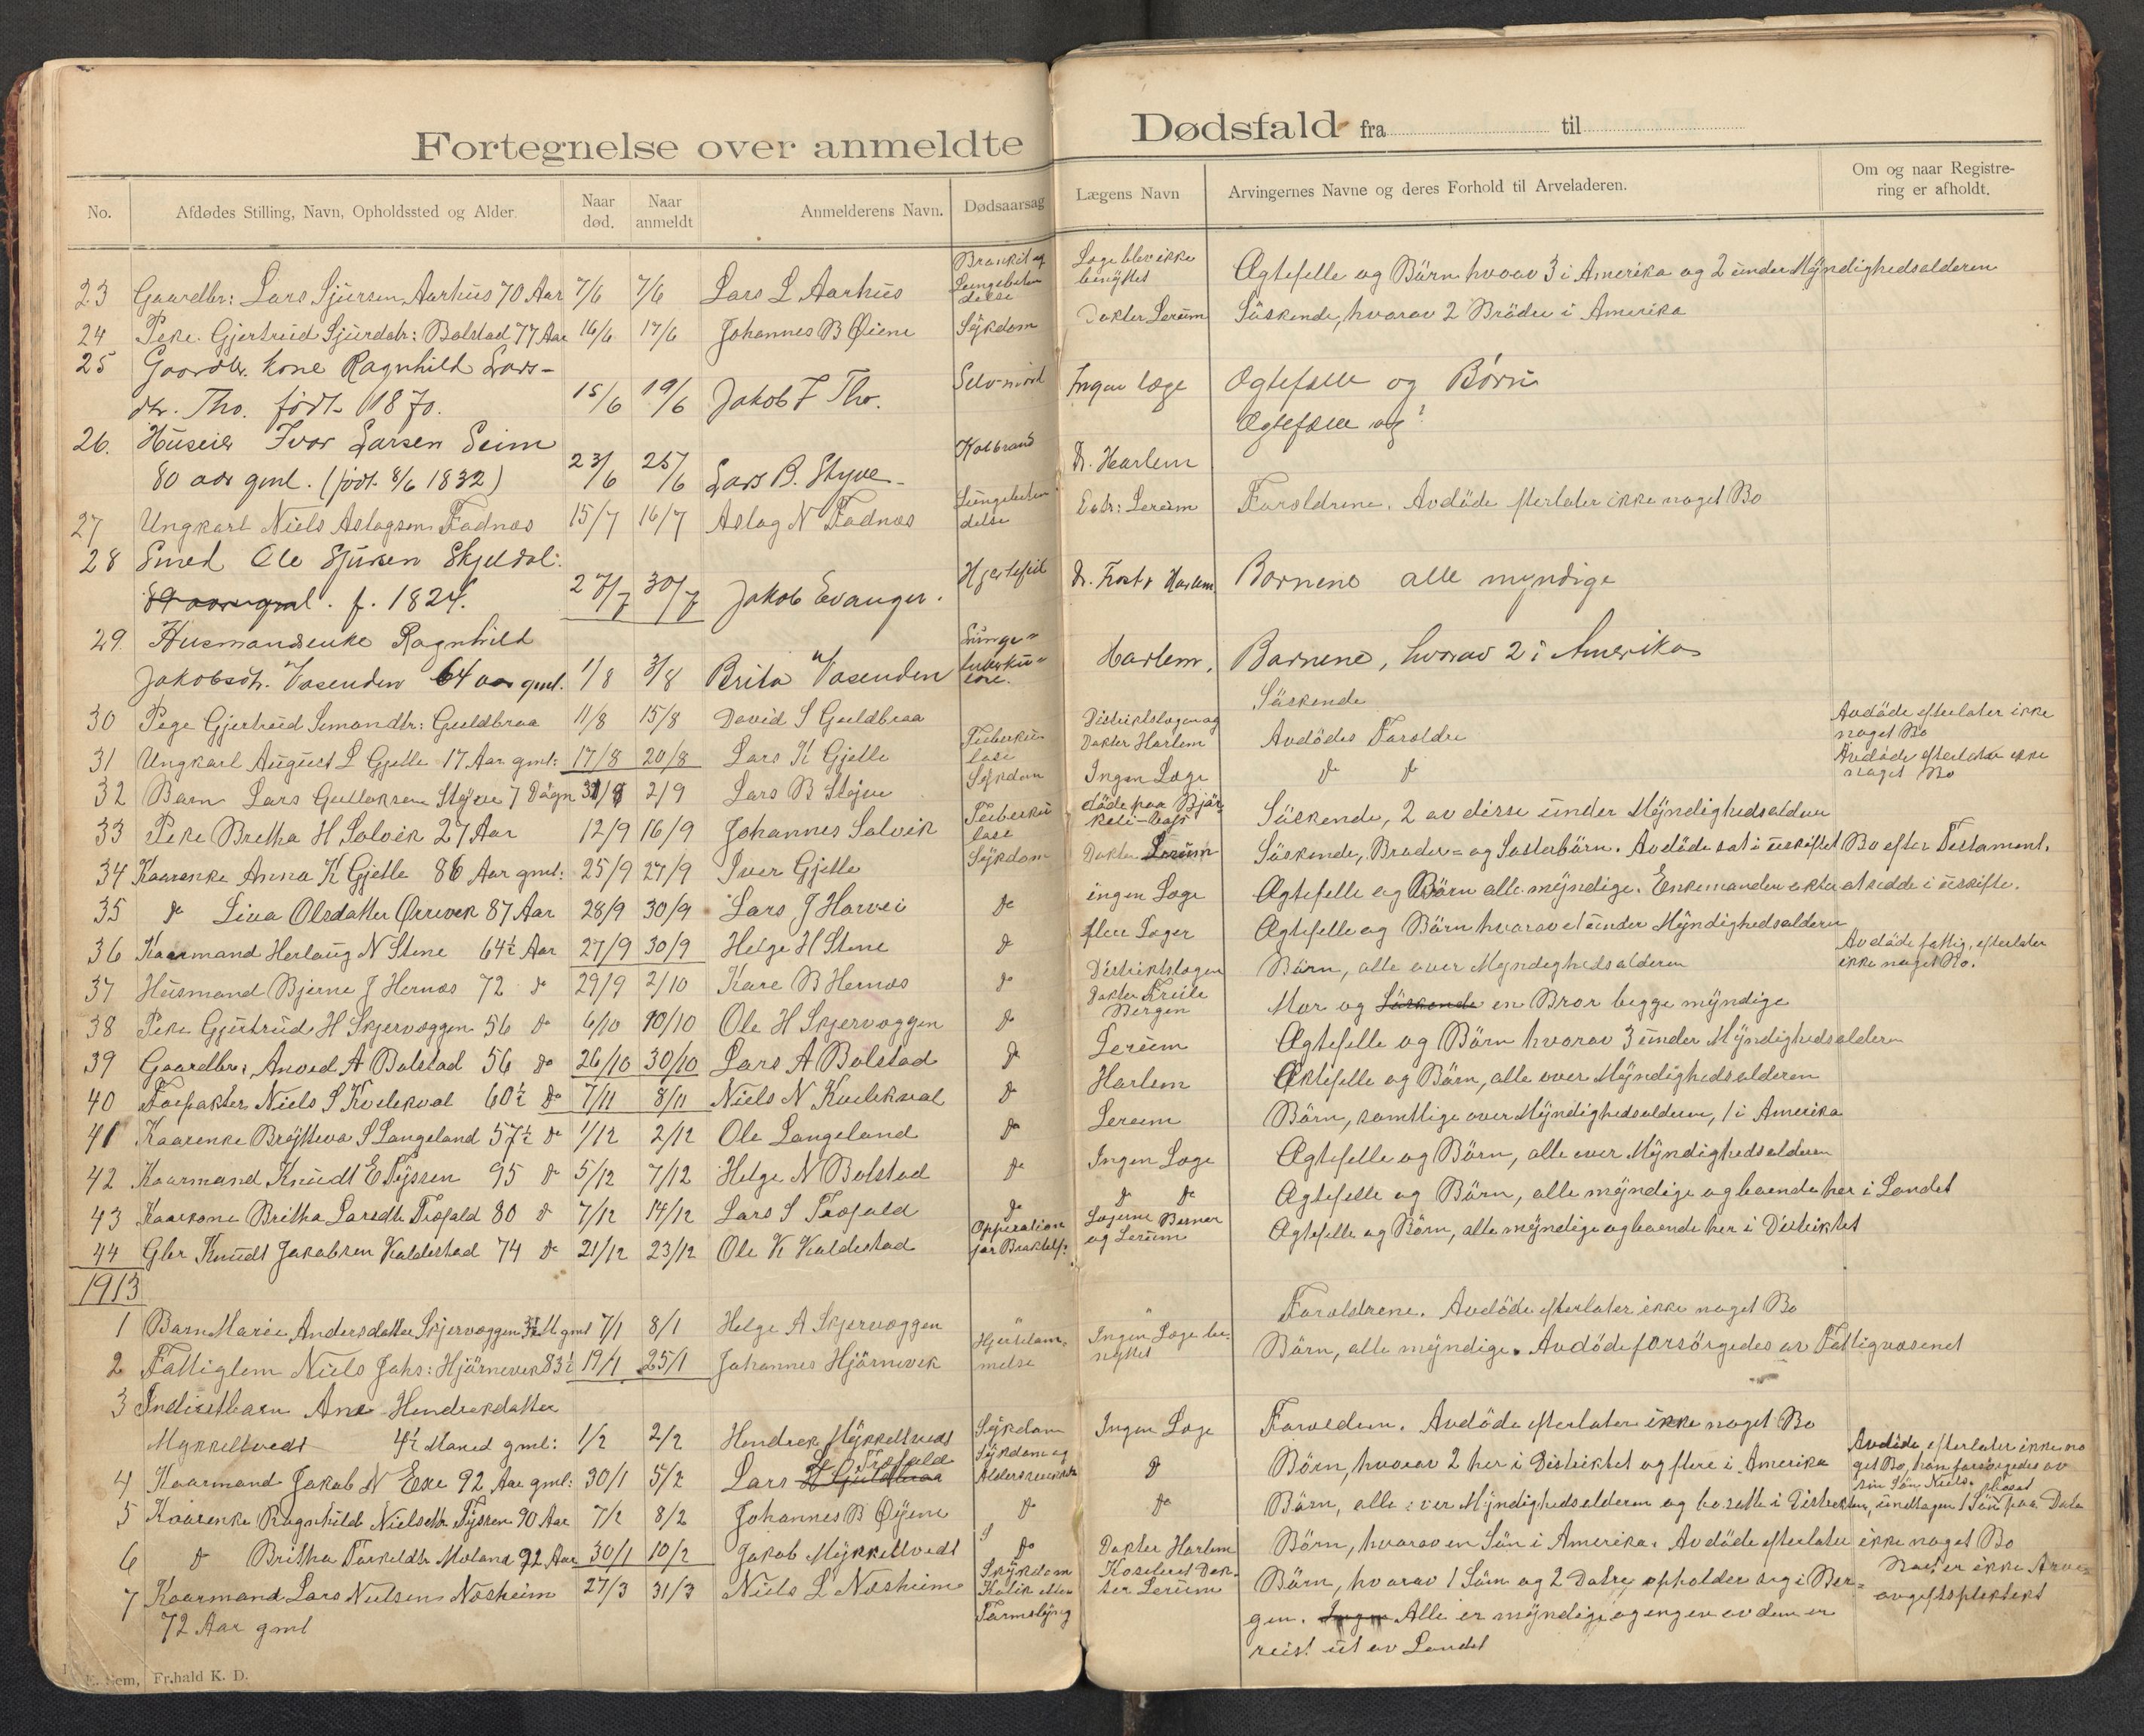 Fortegnelse over anmeldte Dødsfald fra til
No. Afdødes Stilling, Navn, Opholdssted og Alder. Naar død. Naar anmeldt Anmelderens Navn. Dødsaarsag Lægens Navn Arvingernes Navne og deres Forhold til Arveladeren. Om og naar Registrering er afholdt.
23 Gaardbr: Lars Sjursen Aarhus 70 Aar 7/6 7/6 Lars L Aarhus Læge blev ikke benyttet Ægtefelle og Börn hvorav 3 i Amerika og 2 under Myndighedsalderen
24 Peke. Gjertrud Sjurdatr: Bolstad 77 Aar 16/6 17/6 Johannes B Øiene Sykdom Dokter Lerum Söskende, hvorav 2 Brödre i Amerika
25 Gaardbr. kone Ragnhild Lars-
dtr. Tho. født 1870. 15/6 19/6 Jakob I Tho. Selvmord Ingen læge Ægtefælle og Børn
Ægtefælle og?
26. Huseier Ivar Larsen Seim
80 aar gml. (født 8/6 1832) 23/6 25/6 Lars B. Styve Kolbrand Dr. Harlem
27 Ungkarl Niels Aslagsen Fadnæs 15/7 16/7 Aslag N Fadnæs Lungebetendelse Lerum Foreldrene. Avdöde efterlater ikke noget Bo
28 Smed Ole Sjursen Skjeldal:
89 aar gml. f. 1824. 27/7 30/7 Jakob Evanger. Hjertefeil Dr. Harlem Børnene alle myndige
29. Husmandsenke Ragnhild
Jakobsdtr. Vasenden 64 aar gml. 1/8 3/8 Brita Vasenden Lungetuberkulose. Harlem. Børnene, hvorav 2 i Amerika
30 Pege Gjertrud Simondtr: Guldbraa 11/8 15/8 David S Guldbraa Söskende
31 Ungkarl August L Gjelle 17 Aar gml: 17/8 20/8 Lars K Gjelle Tuberkulose Distriktslægen og Dokter Harlem Avdödes Foreldre Avdöde efterlater ikke noget Bo
32 Barn Lars Gulleksen Styve 7 Dögn 31/8 2/9 Lars B Styve Sykdom Ingen Læge do do Avdöde efterlater ikke noget Bo
33 Peke Bretha H Solvik 27 Aar 12/9 16/9 Johannes Solvik Tuberkulose döde paa Söskende, 2 av disse under Myndighedsalderen
34 Kaarenke Anna K Gjelle 86 Aar gml: 25/9 27/9 Iver Gjelle Sykdom Dokter Lerum Söskende, Broder= og Sösterbörn. Avdöde sat i uskiftet Bo efter Testament.
35 do Liva Olsdatter Ørrevik 87 Aar 28/9 30/9 Lars J Horvei do ingen Læge Ægtefelle og Börn alle myndige. Enkemanden akter at sidde i uskifte.
36 Kaarmand Herlaug N Stene 64½ Aar 27/9 30/9 Helge H Stene do flere Læger Ægtefelle og Börn hvorav et under Myndighedsalderen
37 Husmand Bjerne J Hernæs 72 do 29/9 2/10 Kare B Hernæs do Distriktslægen Börn, alle over Myndighedsalderen Avdöde fattig, efterlater ikke noget Bo.
38 Peke Gjertrud H Skjervæggen 56 do 6/10 10/10 Ole H Skjervæggen do Dokter Bergen Mor og Söskende en Bror begge myndige
39 Gaardbr: Anved A Bolstad 56 do 26/10 30/10 Lars A Bolstad do Lerum Ægtefelle og Börn hvorav 3 under Myndighedsalderen
40 Niels S Kvilekval 60½ do 7/11 8/11 Niels N Kvilekval do Harlem Ektefelle og Börn, alle over Myndighedsalderen
41 Kaarenke Brytteva S Langeland 57½ do 1/12 2/12 Ole Langeland do Lerum Börn, samtlige over Myndighedsalderen, 1 i Amerika
42 Kaarmand Knudt E Fyssen 95 do 5/12 7/12 Helge N Bolstad do Ingen Læge Ægtefelle og Börn, alle over Myndighedsalderen
43 Kaarkone Britha Larsdtr Træfald 80 do 7/12 14/12 Lars S Træfald do do do Ægtefelle og Börn, alle myndige og boende her i Landet
44 Gbr Knudt Jakobsen Kaldestad 74 do 21/12 23/12 Ole K Kaldestad Opperation for Lægerne Berner og Lerum Ægtefelle og Börn, alle myndige og boende her i Distriktet
1913
1 Barn Marie Andersdatter Skjervæggen M gml 7/1 8/1 Helge A Skjervæggen Foreldrene. Avdöde efterlater ikke noget Bo
2 Fattiglem Niels Johs: Hjörnevik 83½ 19/1 25/1 Johannes Hjörnevik Ingen Læge benyttet Börn, alle myndige. Avdöde forsörgedes av Fattigvæsenet
3 Indistbarn Ane Hendrekdatter
Mykkeltvedt 4½ Maned gml: 1/2 2/2 Hendrek Mykkeltvedt Sykdom Ingen Læge Foreldrene. Avdöde efterlater ikke noget Bo
4 Kaarmand Jakob N Exe 92 Aar gml: 30/1 5/2 Lars H Guldbraa Træfald Sykdom og do Börn, hvorav 2 her i Distriktet og flere i Amerika Avdöde, efterlater ikke noget Bo, han forsörgedes av sin Sön Niels.
5 Kaarenke Ragnhild Nielsdtr Fyssen 90 Aar 7/2 8/2 Johannes B Øyene do do Börn, alle over Myndighedsalderen og bosatte i Distriktet, undtagen 1 Sön paa
6 do Britha Torkeldtr Moland 92 Aar 30/1 10/2 Jakob Mykkeltvedt do Dokter Harlem Börn, hvorav en Sön i Amerika. Avdöde efterlater ikke noget Bo
7 Kaarmand Lars Nielsen Næsheim 27/3 31/3 Niels L Næsheim Sykdom Kolik efter Dokter Lerum Börn, hvorav 1 Sön og 2 Dötre opholder seg i Ber=
72 Aar gml gen. Ingen Alle er myndige og ingen av dem er
reist ut av Landet
er ikke Arveavgiftspliktekt
E. Sem, Fr.hald K. D.